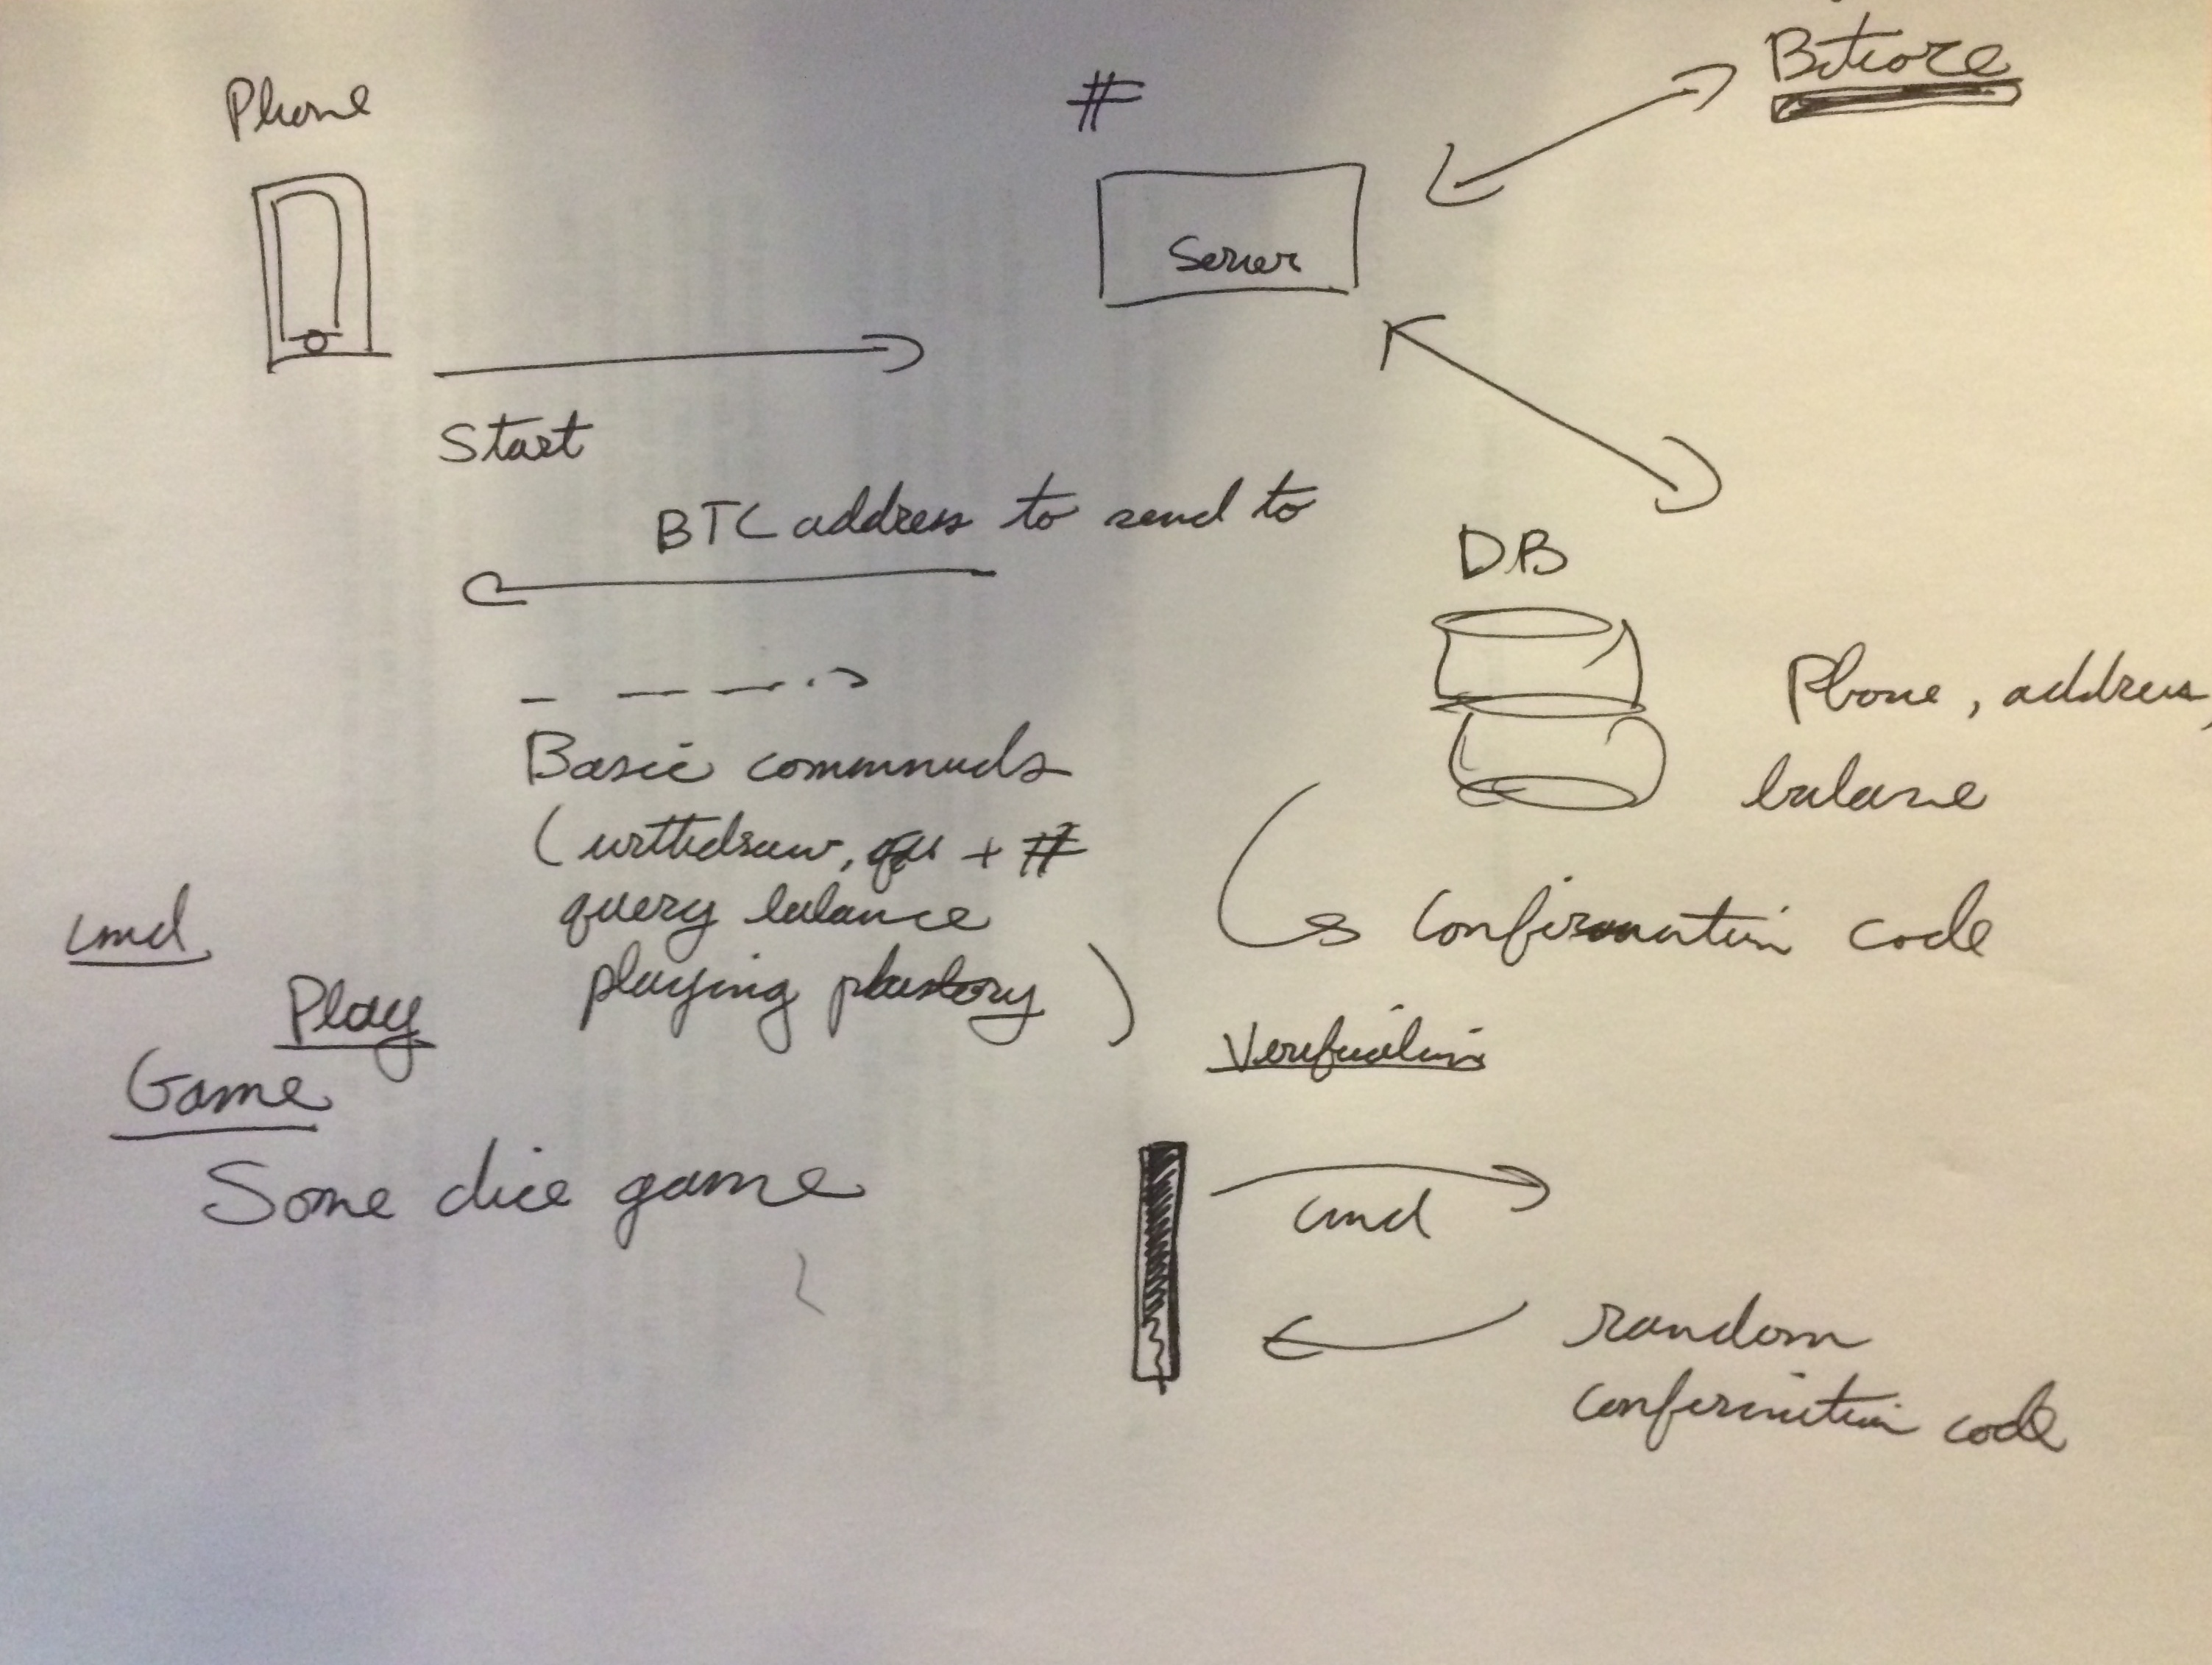 Phone
#
Bitcore
Server
Start
BTC address to send to
DB
Phone, address,
balance
Basic commands
(withdraw, + #
query balance
playing history)
cmd
Play
Game
Some dice game
Confirmation code
Verification
cmd
random
confirmation code